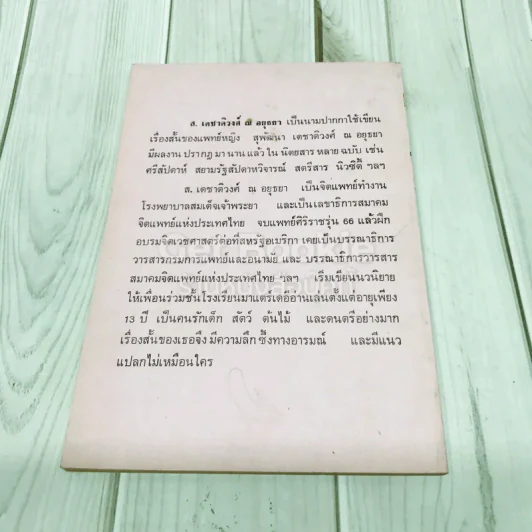 ส. เดชาติวงศ์ ณ อยุธยา เป็นนามปากกาใช้เขียน
เรื่องสั้นของแพทย์หญิง สุพัฒนา เดชาติวงศ์ ณ อยุธยา
มีผลงาน ปรากฏ มา นาน แล้ว ใน นิตยสาร หลาย ฉบับ เช่น
ศรีสัปดาห์ สยามรัฐสัปดาหวิจารณ์ สตรีสาร นิวซิตี้ ฯลฯ
ส. เดชาติวงศ์ ณ อยุธยา เป็นจิตแพทย์ทำงาน
โรงพยาบาลสมเด็จเจ้าพระยา และเป็นเลขาธิการสมาคม
จิตแพทย์แห่งประเทศไทย จบแพทย์ศิริราชรุ่น 66 แล้วฝึก
อบรมจิตเวชศาสตร์ต่อที่สหรัฐอเมริกา เคยเป็นบรรณาธิการ
วารสารกรมการแพทย์และอนามัย และ บรรณาธิการวารสาร
สมาคมจิตแพทย์แห่งประเทศไทย ฯลฯ เริ่มเขียนนวนิยาย
ให้เพื่อนร่วมชั้นโรงเรียนมาแตร์เดอีอ่านเล่นตั้งแต่อายุเพียง
13 ปี เป็นคนรักเด็ก สัตว์ ต้นไม้ และดนตรีอย่างมาก
เรื่องสั้นของเธอจึง มีความลึก ซึ้งทางอารมณ์ และมีแนว
แปลกไม่เหมือนใคร